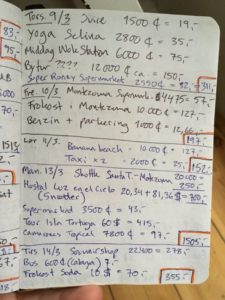 Tors. 9/3 Juice 1500 ₡ = 19,-
Yoga Selina 2800 ₡ = 35,-
Middag Wok Station 6000 ₡ = 75,-
Bytur ???? 12.000 ₡ ca. = 150,-
Super Ronny Supermarket 2550 ₡ = 32,- 311,-
Fre. 10/3 Montezuma Supermark. ₡4475 = 57,-
Frokost i Montezuma 10.000 = 127,-
Benzin + parkering 1000 ₡ = 12,66,-
197,-
Lør 11/3. Banana beach - 10.000 = 127,-
Taxi x 2 - 2000 = 25,- 152,-
Man. 13/3 Shuttle Santa T - Makzuma 20.000 =
250,-
Hostel Luz en el Cielo 20,34 + 81,36 $ = 700,-
Supermarked 3500 ₡ = 43,-
Tour Isla Tortuga 60 $ = 415,-
Camarones Topical 7800 ₡ = 97,-
1505,-
Tirs 14/3 Souvenirshop 22400 = 278,-
Bus 600 ₡ 7,-
Frokost Soda 10 $ = 70,- 355,-
83,-
95,-